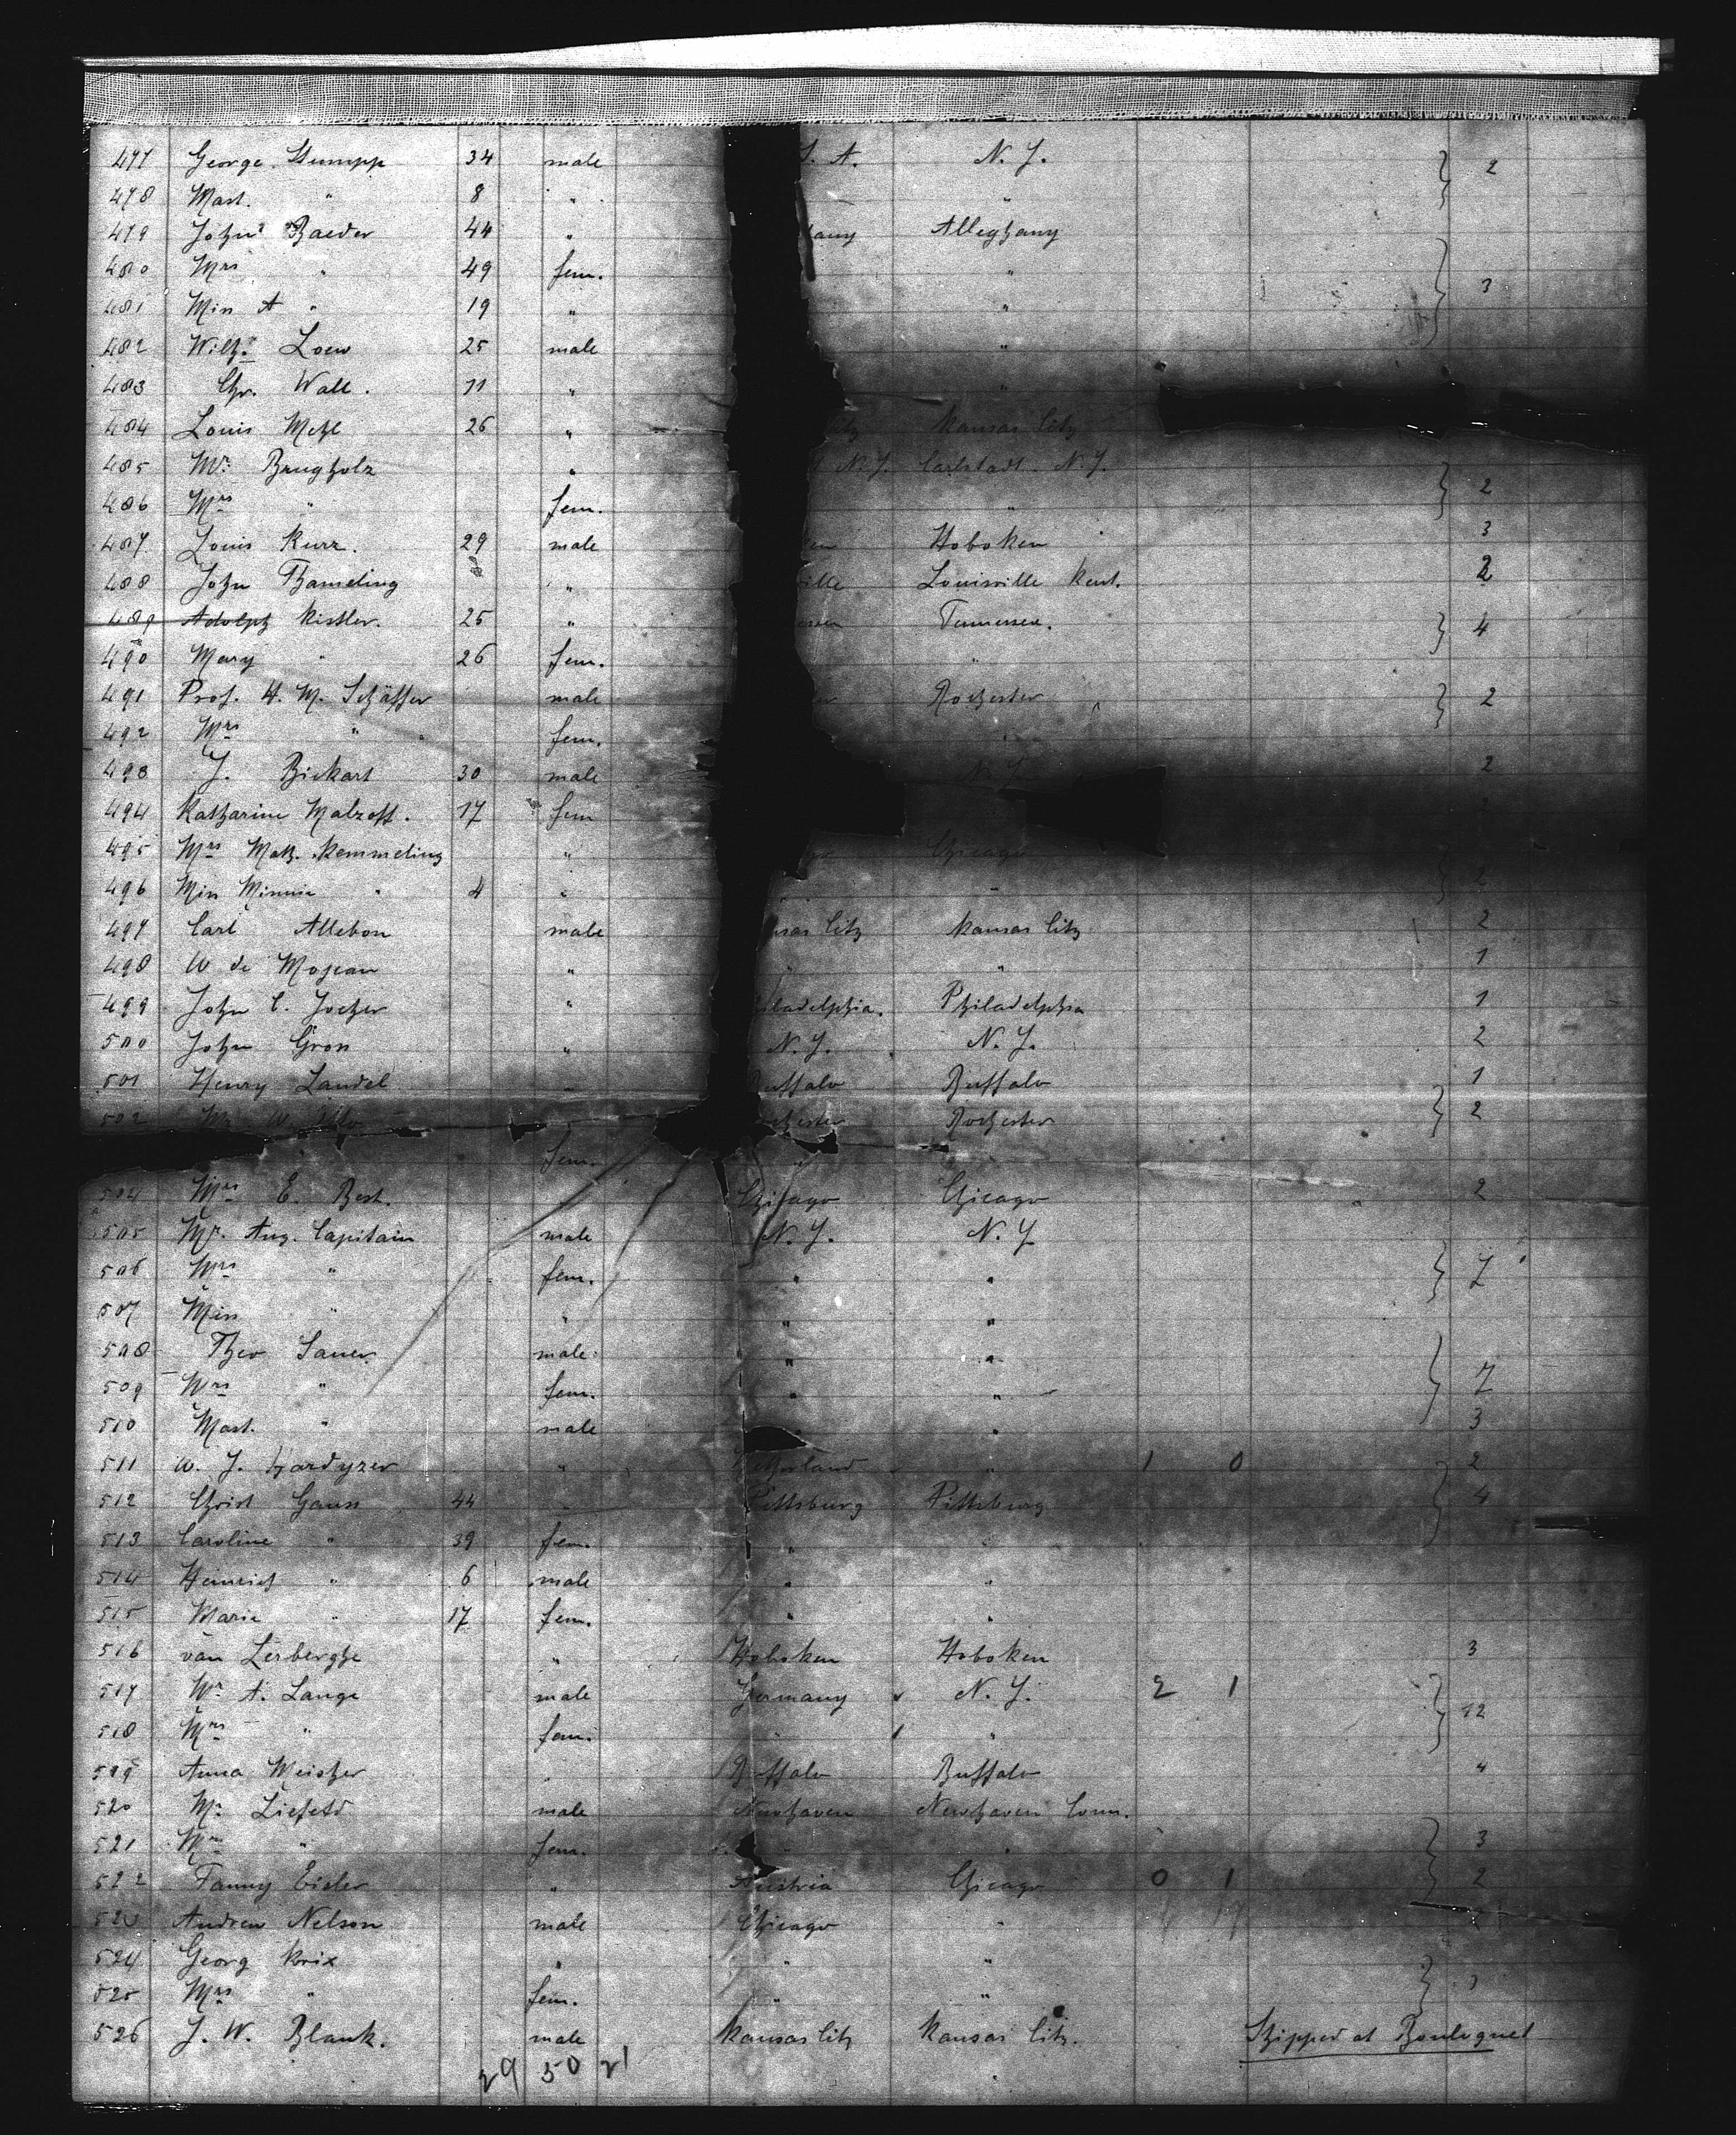 477 George Stumpp 34 male S. A. N. Y. 2
478 Mast. " 8 " "
479 John Baeder 44 " any Alleghany
480 Mrs " 49 fem. " 3
481 Miss A " 19 " "
482 Wilh. Loew 25 male "
483 Chr. Wall. 11 " "
484 Louis Mehl 26 " Kansas City
485 Mr. Brugholz " N. J. Carlstadt N. J.
486 Mrs " fem. " 2
487 Louis Kurz. 29 male en Hoboken 3
488 John Thameling " ville Louisville Kent. 2
489 Adolph Kistler. 25 " Tennessee. 4
490 Mary " 26 fem. "
491 Prof. H. M. Schäffer male er Rochester 2
492 Mrs " fem. "
493 J. Bickart 30 male N. Y. 2
494 Katharine Malzoff. 17 fem
495 Mrs Math. Kemmeling " go Chicago
496 Miss Minnie " 4 " " 2
497 Carl Allebon male nsas City Kansas City 2
498 W de Mojean " " " 1
499 John C. Jocher " hiladelphia. Philadelphia 1
500 John Gross " N. Y. N. Y. 2
501 Henry Landel " Buffalo Buffalo 1
502 Mr W. chester Rochester 2
fem. "
504 Mrs E. Best. Chicago Chicago 2
505 Mr. Aug. Capitain male N. Y. N. Y.
506 Mrs " fem. " " 7
507 Miss " " " "
508 Theo Sauer male " "
509 Mrs " fem. " " 7
510 Mast. " male " " 3
511 W. J. Hardyzer " " 1 0 2
512 Christ Gauss 44 " Pittsburg Pittsburg 4
513 Caroline " 39 fem. " "
514 Heinrich " 6 male " "
515 Marie " 17 fem. " "
516 van Lerberghe " Hoboken Hoboken 3
517 Mr A. Lange male Germany N. Y. 2 1
518 Mrs " fem. " " 12
519 Anna Meisher " Buffalo Buffalo 4
520 Mr male Newhaven Newhaven Conn.
521 Mrs " fem. " " 3
522 Fanny Eisler " Austria Chicago 0 1 2
523 Andrew Nelson male Chicago "
524 Georg Krix " " "
525 Mrs " fem. " "
526 J. W. Blank. male Kansas City Kansas City. Shipped at
29 50 21